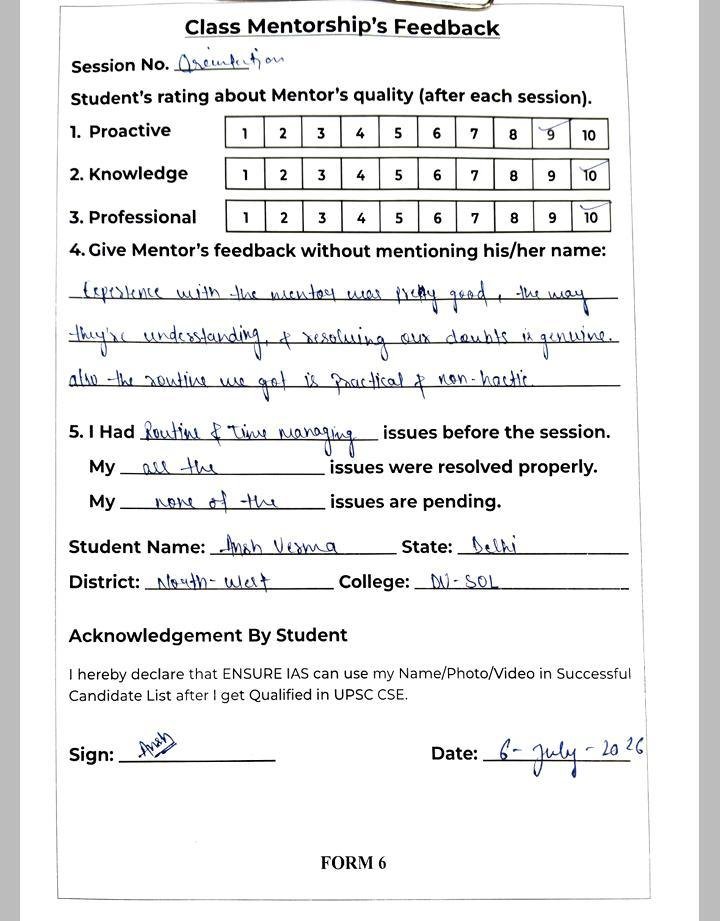 Class Mentorship's Feedback
Session No. Oreintation
Student's rating about Mentor's quality (after each session).
1. Proactive 1 2 3 4 5 6 7 8 9 10
2. Knowledge 1 2 3 4 5 6 7 8 9 10
3. Professional 1 2 3 4 5 6 7 8 9 10
4. Give Mentor's feedback without mentioning his/her name:
Experience with the mentor was pretty good, the way
they're understanding, & resolving our doubts is genuine.
also the routine we got is practical & non-hactic.
5. I Had Routine & Time managing issues before the session.
My all the issues were resolved properly.
My none of the issues are pending.
Student Name: Ansh Verma State: Delhi
District: North-West College: DU-SOL
Acknowledgement By Student
I hereby declare that ENSURE IAS can use my Name/Photo/Video in Successful
Candidate List after I get Qualified in UPSC CSE.
Sign: Ansh Date: 6-July-2026
FORM 6